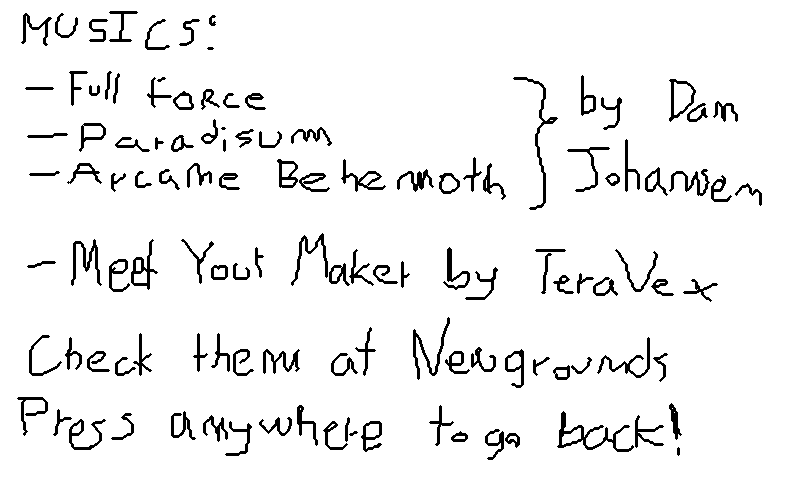 MUSICS:
- Full Force
- Paradisum
- Arcane Behemoth
by Dan Johansen
- Meet Your Maker by TeraVex
Check them at Newgrounds
Press anywhere to go back!